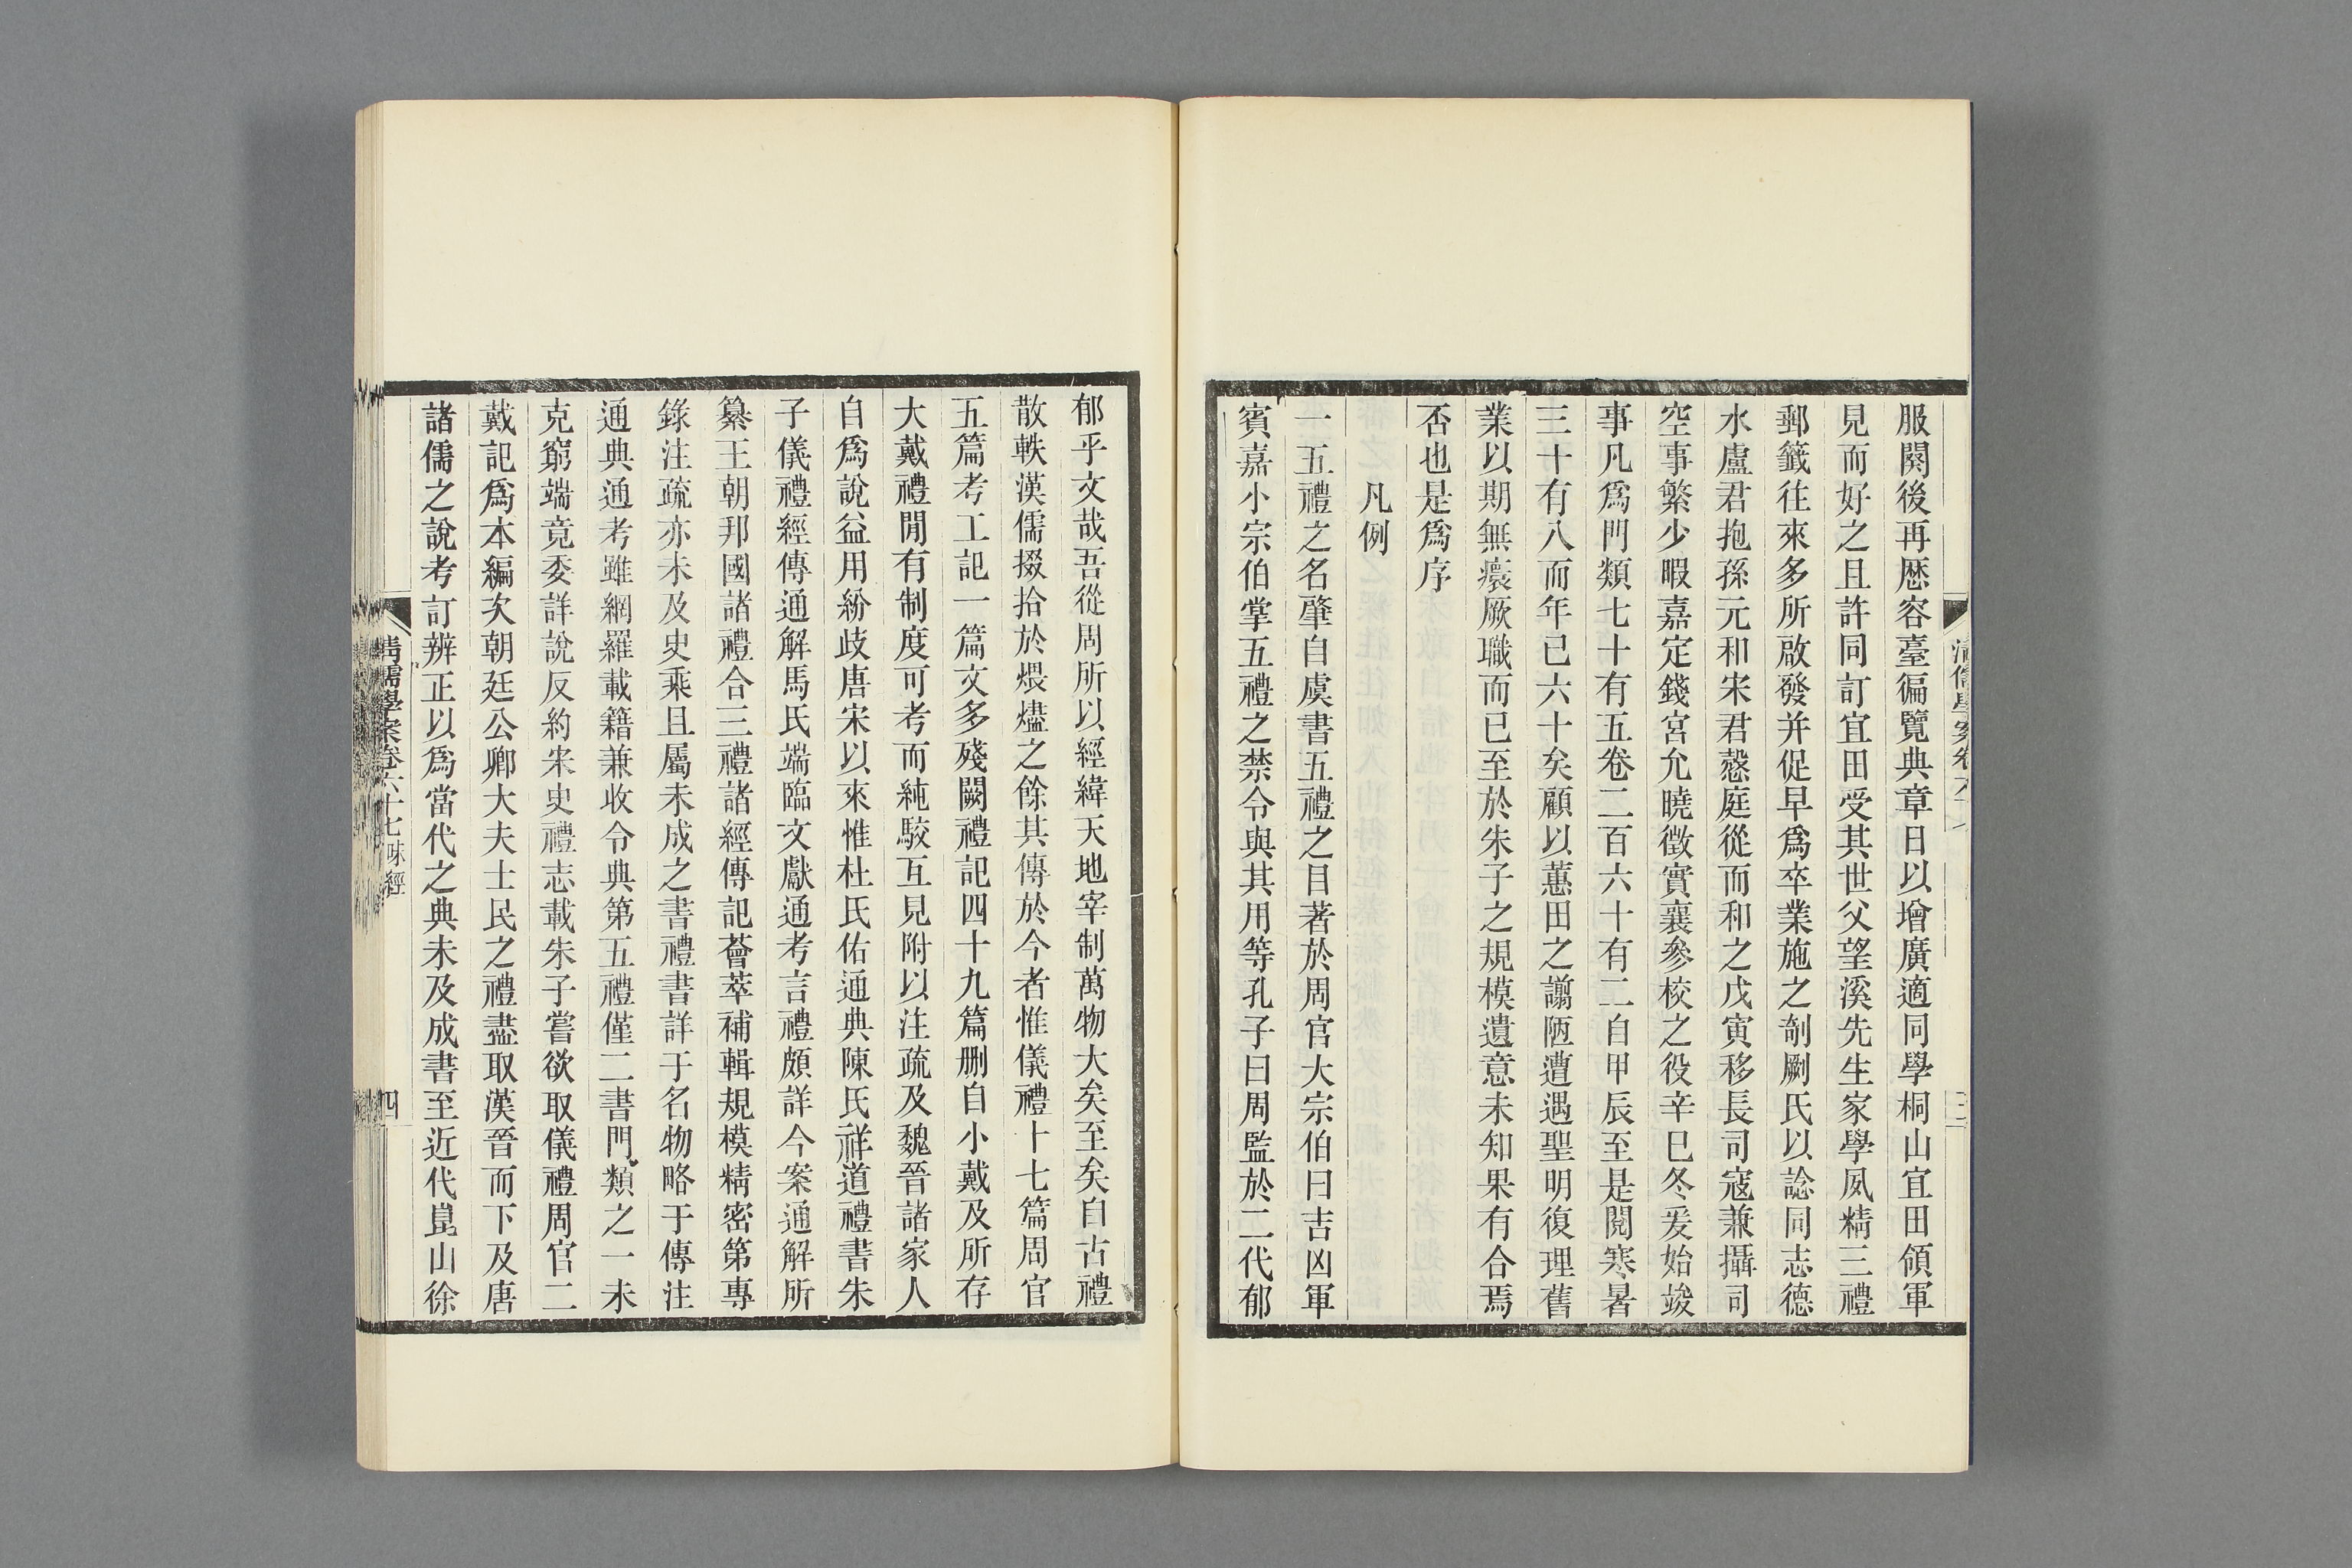 服闋後再歷容臺徧覽典章日以增廣適同學桐山宜田領軍
見而好之且許同訂宜田受其世父望溪先生家學夙精三禮
郵籤往來多所啟發并促早為卒業施之剞劂氏以諗同志德
水盧君抱孫元和宋君慤庭從而和之戊寅移長司寇兼攝司
空事繁少暇嘉定錢宮允曉徵實襄參校之役辛巳冬爰始竣
事凡爲門類七十有五卷二百六十有二自甲辰至是閱寒暑
三十有八而年已六十矣顧以蕙田之譾陋遭遇聖明復理舊
業以期無瘝厥職而已至於朱子之規模遺意未知果有合焉
否也是爲序
凡例
一五禮之名肇自虞書五禮之目著於周官大宗伯曰吉凶軍
賓嘉小宗伯掌五禮之禁令與其用等孔子曰周監於二代郁
郁乎文哉吾從周所以經緯天地宰制萬物大矣至矣自古禮
散軼漢儒掇拾於煨燼之餘其傳於今者惟儀禮十七篇周官
五篇考工記一篇文多殘闕禮記四十九篇删自小戴及所存
大戴禮閒有制度可考而純駮互見附以注疏及魏晉諸家人
自爲說益用紛歧唐宋以來惟杜氏佑通典陳氏祥道禮書朱
子儀禮經傳通解馬氏端臨文獻通考言禮頗詳今案通解所
纂王朝邦國諸禮合三禮諸經傳記薈萃補輯規模精密第專
錄注疏亦未及史乘且屬未成之書禮書詳于名物略于傳注
通典通考雖網羅載籍兼收令典第五禮僅二書門類之一未
克窮端竟委詳說反約宋史禮志載朱子嘗欲取儀禮周官二
戴記爲本編次朝廷公卿大夫士民之禮盡取漢晉而下及唐
諸儒之說考訂辨正以爲當代之典未及成書至近代崑山徐
清儒學案卷六十七 味經
四